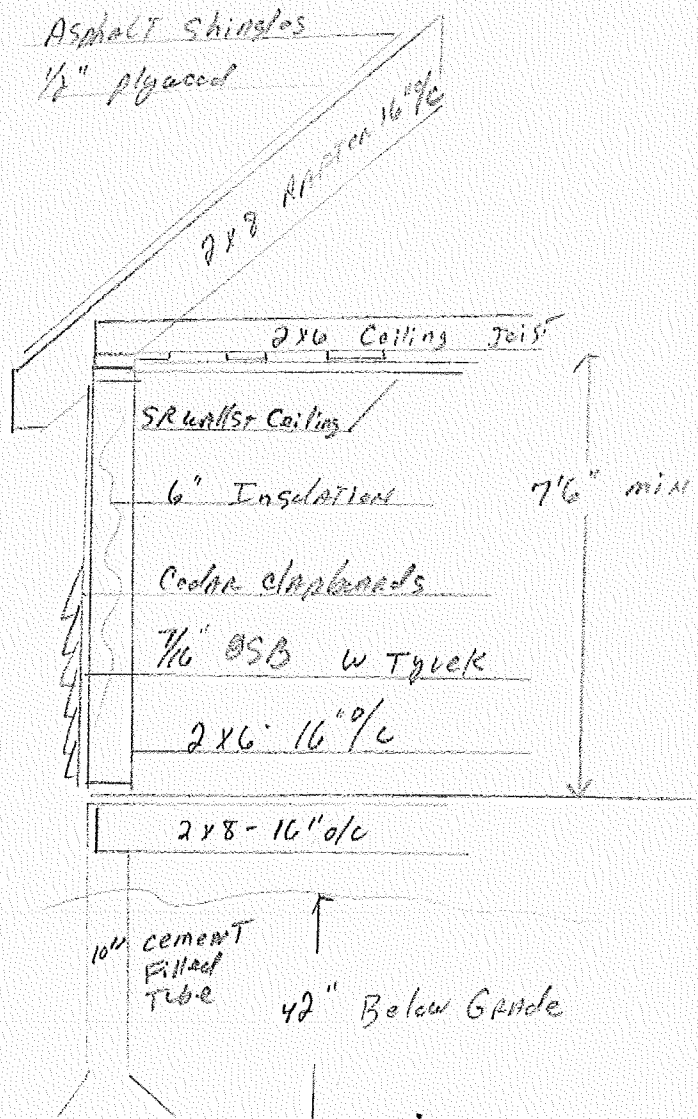 Asphalt Shingles
1/2" plywood
2x8 Rafter 16" o/c
2x6 Ceiling Joist
SR walls + Ceiling
6" Insulation
7'6" min
Cedar clapboards
7/16" OSB W Tyvek
2x6 16" o/c
2x8 - 16" o/c
10" cement
Filled
Tube
42" Below Grade